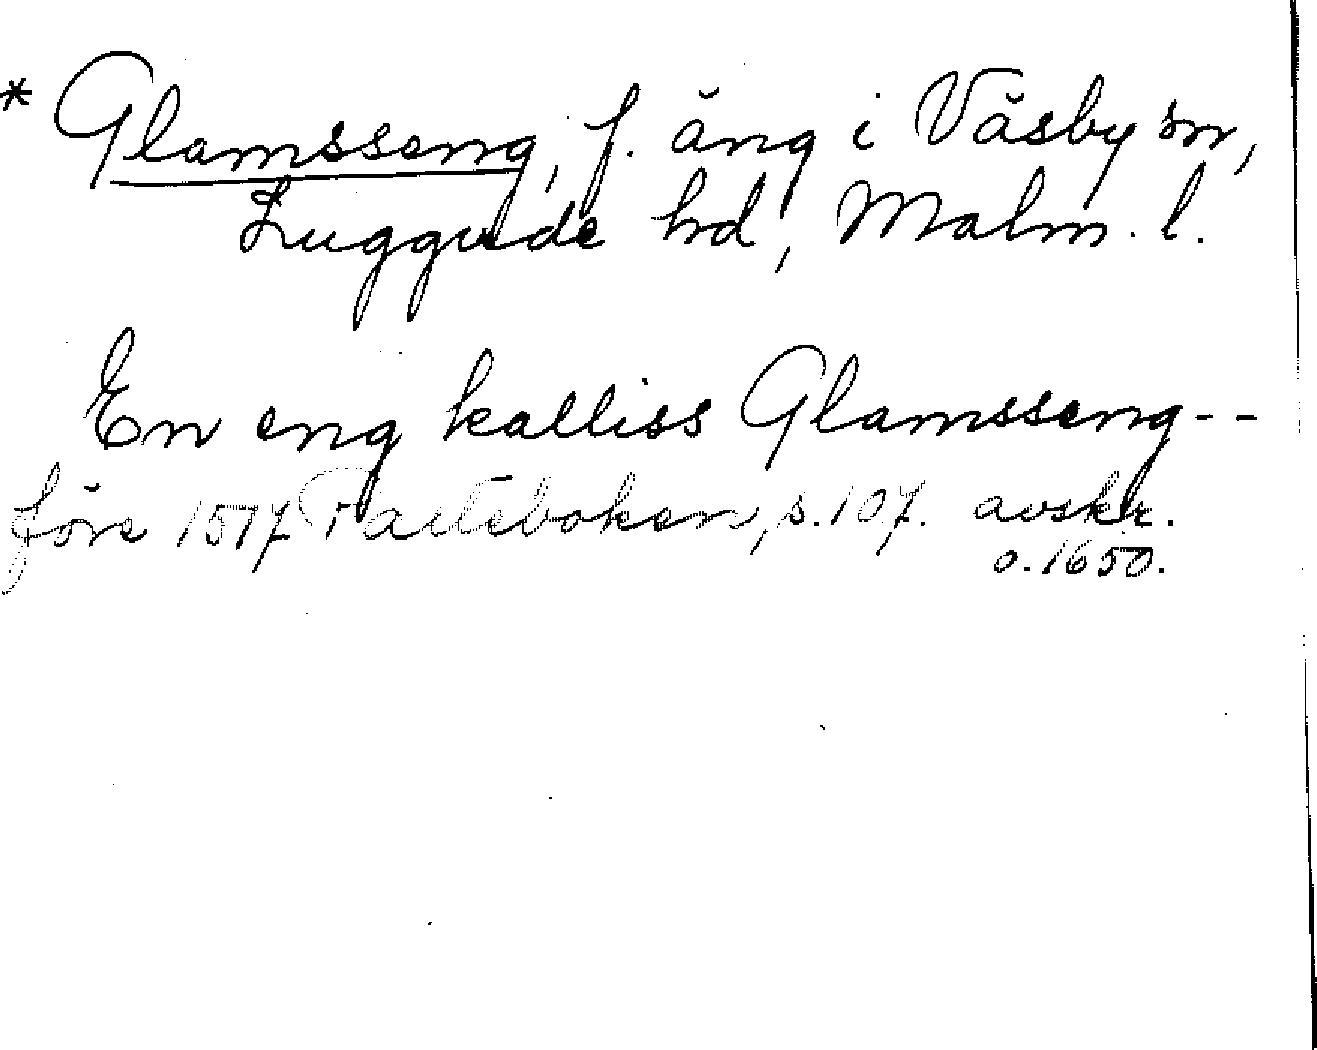 * Glamsseng, f. äng i Väsby sn,
Luggude hd, Malm. l.
En eng kalliss Glamsseng--
före 1517 Palteboken, s. 107. avskr.
o. 1650.